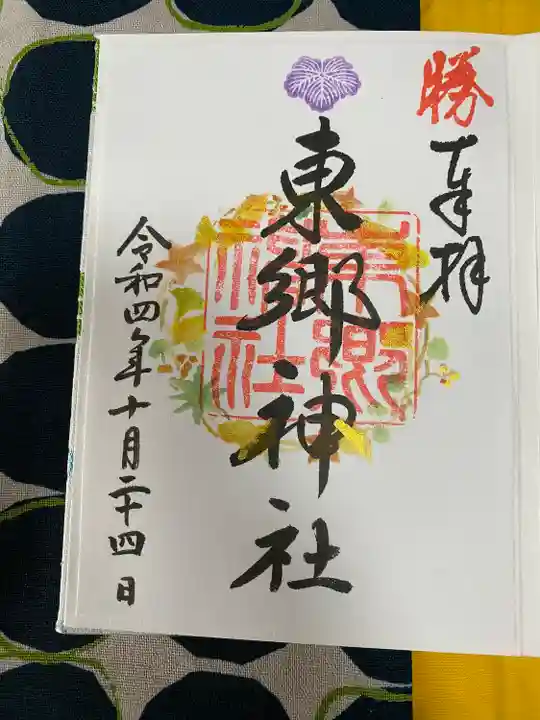 勝
奉拝
東郷神社
東郷神社
令和四年十月二十四日